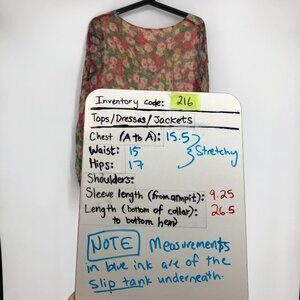 Inventory code: 216
Tops/Dresses/Jackets
Chest (A to A): 15.5
Waist: 15 } Stretchy
Hips: 17
Shoulders:
Sleeve length (from armpit): 9.25
Length (bottom of collar): 26.5
to bottom hem)
NOTE Measurements
in blue ink are of the
slip tank underneath.